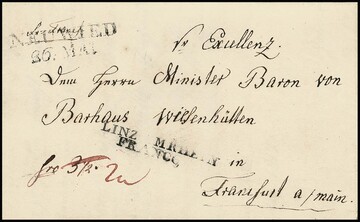 NEUWIED
26. MAI
Sr Excellenz.
Dem Herrn Minister Baron von
Barhaus Wiesenhütten
LINZ A. M RHEIN
FRANCO
in
fro 3½.
Franckfurt a/main.